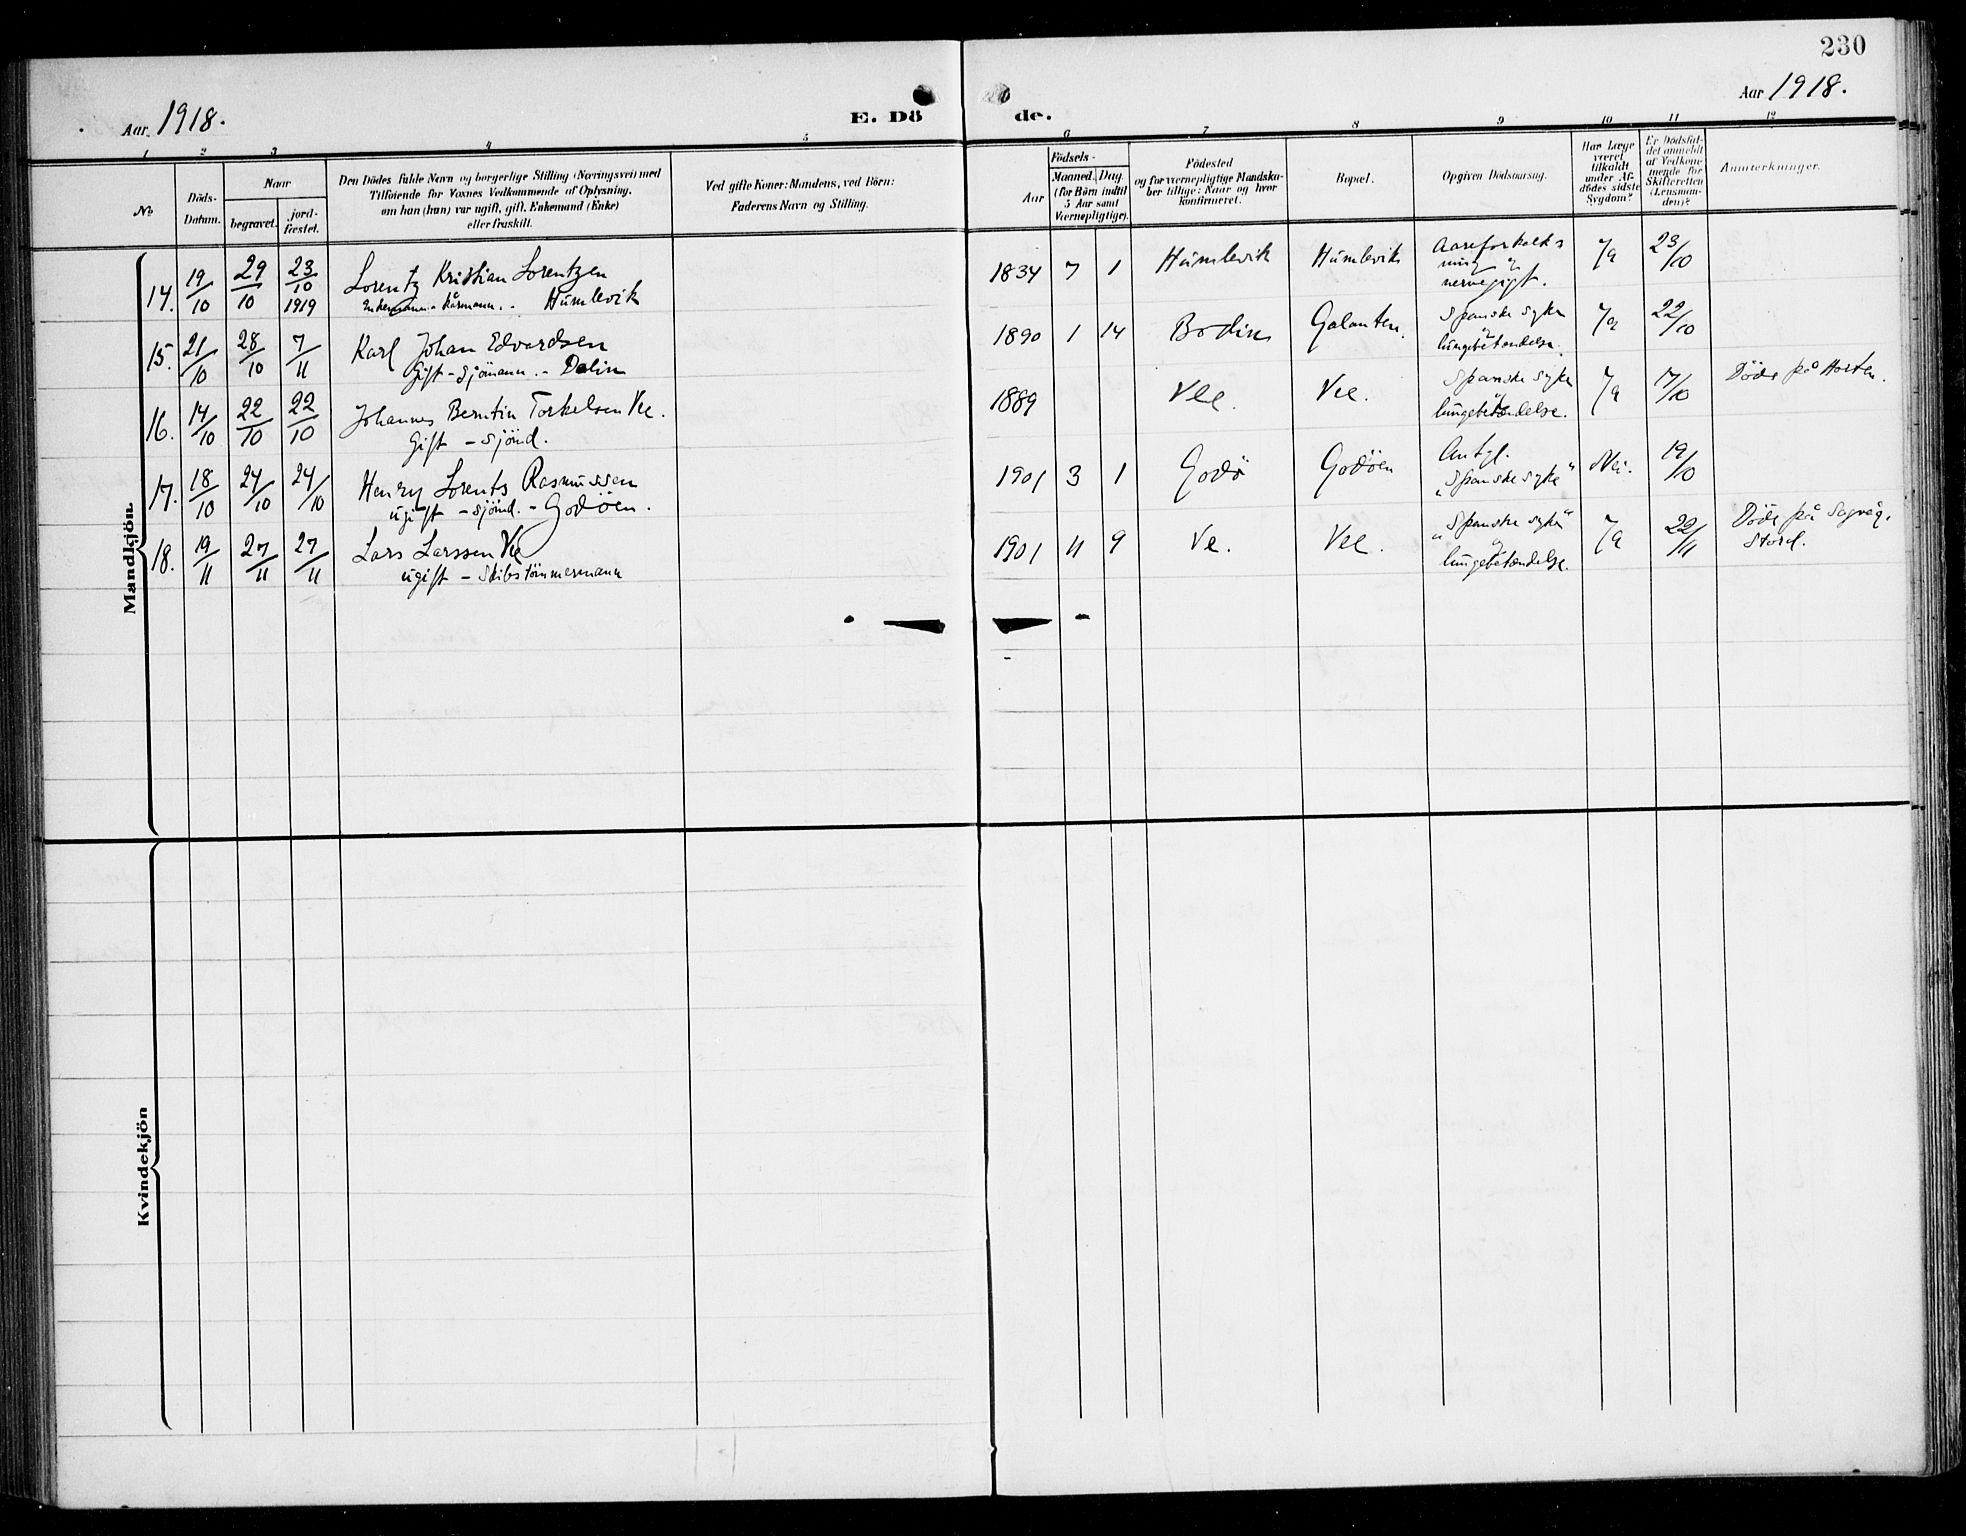 230
Aar 1918.
E. Dö
de.
Aar 1918.
1 2 3 4 5 6 7 8 9 10 11 12
No
Döds-
Datum.
Naar
begravet.
jord-
fæstet.
Den Dödes fulde Navn og borgerlige Stilling (Næringsvei) med
Tilföiende for Voxnes Vedkommende af Oplysning,
om han (hun) var ugift, gift, Enkemand (Enke)
eller fraskilt.
Ved gifte Koner: Mandens, ved Börn:
Faderens Navn og Stilling.
Födsels-
Aar
Maaned. Dag.
(for Börn indtil
5 Aar samt
Værnepligtige).
Födested
og for værnepligtige Mandska-
ber tillige: Naar og hvor
konfirmeret.
Bopæl.
Opgiven Dödsaarsag.
Har Læge
været
tilkaldt
under Af-
dödes sidste
Sygdom?
Er Dödsfal-
det anmeldt
af Vedkom-
mende for
Skifteretten
(Lensman-
den)?
Anmerkninger.
Mandkjön.
14. 19/10 29/10 23/10 1919 Lorentz Kristian Lorentzen
Enkemann - kårmann. - Humlevik
1834 7 1 Humlevik Humlevik Aareforkalk-
ning og
nervegigt. Ja 23/10
15. 21/10 28/10 7/11 Karl Johan Edvardsen
Gift - Sjömann. -
1890 1 14 Bodin Galanten. Spanske syke
og
lungebetændelse. Ja 22/10
16. 14/10 22/10 22/10 Johannes Berntin Torkelsen Vee.
Gift - sjömd.
1889 Vee. Vee. Spanske syke
og
lungebetændelse. Ja 17/10 Döde på Horten.
17. 18/10 24/10 24/10 Henry Lorents Rasmussen
ugift - sjömd. - Godöen.
1901 3 1 Godö Godöen Antgl.
"Spanske syke" Nei. 19/10
18. 19/11 27/11 27/11 Lars Larssen Ve
ugift - Skibstömmermann
1901 11 9 Ve. Vee. "Spanske syke"
og
lungebetændelse. Ja 22/11 Döde på Sagvåg,
Stord.
Kvindekjön